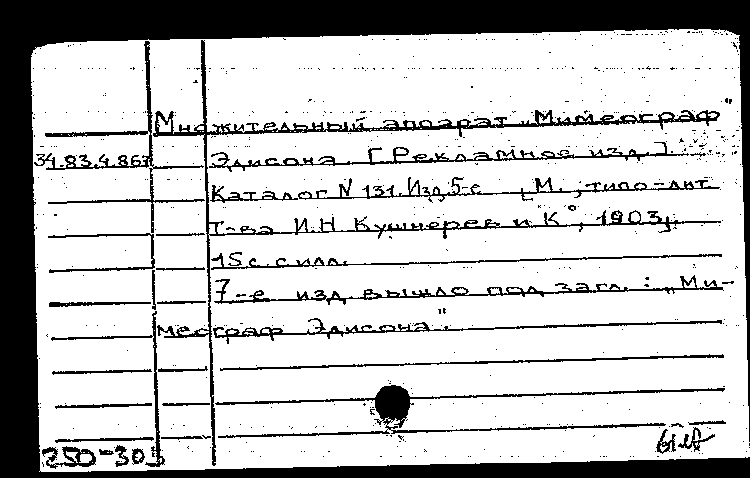 Множительный аппарат „Мимеограф"
34.83.4.867 Эдисона. [Рекламное изд.].
Каталог N 131. Изд. 5-е. [М., типо-лит.
Т-ва И.Н. Кушнерев и К°, 1903].
15 с. с илл.
7-е изд. вышло под загл.: „Ми-
меограф Эдисона".
250-303